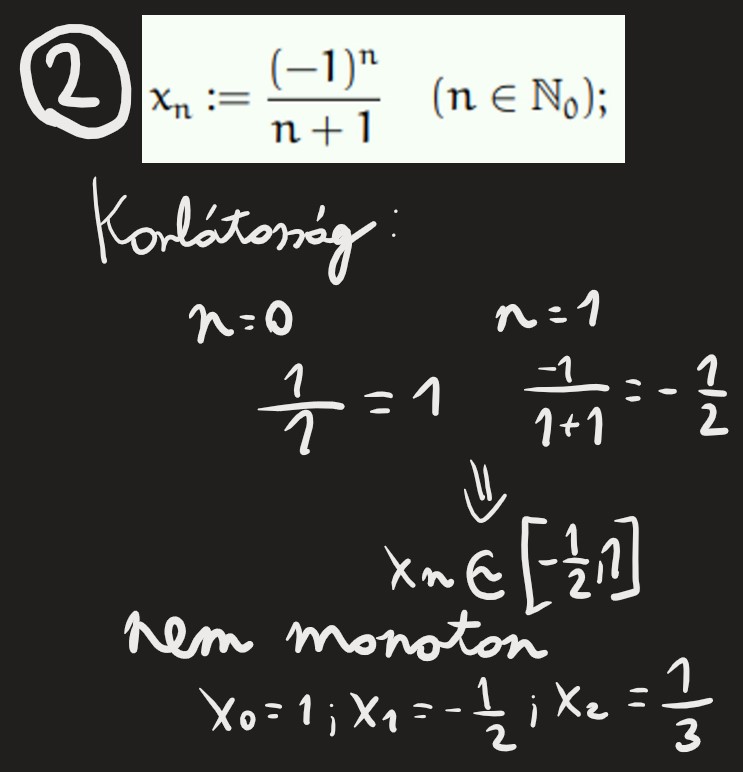 ② xₙ := (−1)ⁿ / (n + 1) (n ∈ ℕ₀);
Korlátosság:
n=0 n=1
1/1 = 1 -1/(1+1) = -1/2
⇓
xₙ ∈ [-1/2, 1]
nem monoton
x₀=1; x₁=-1/2; x₂=1/3